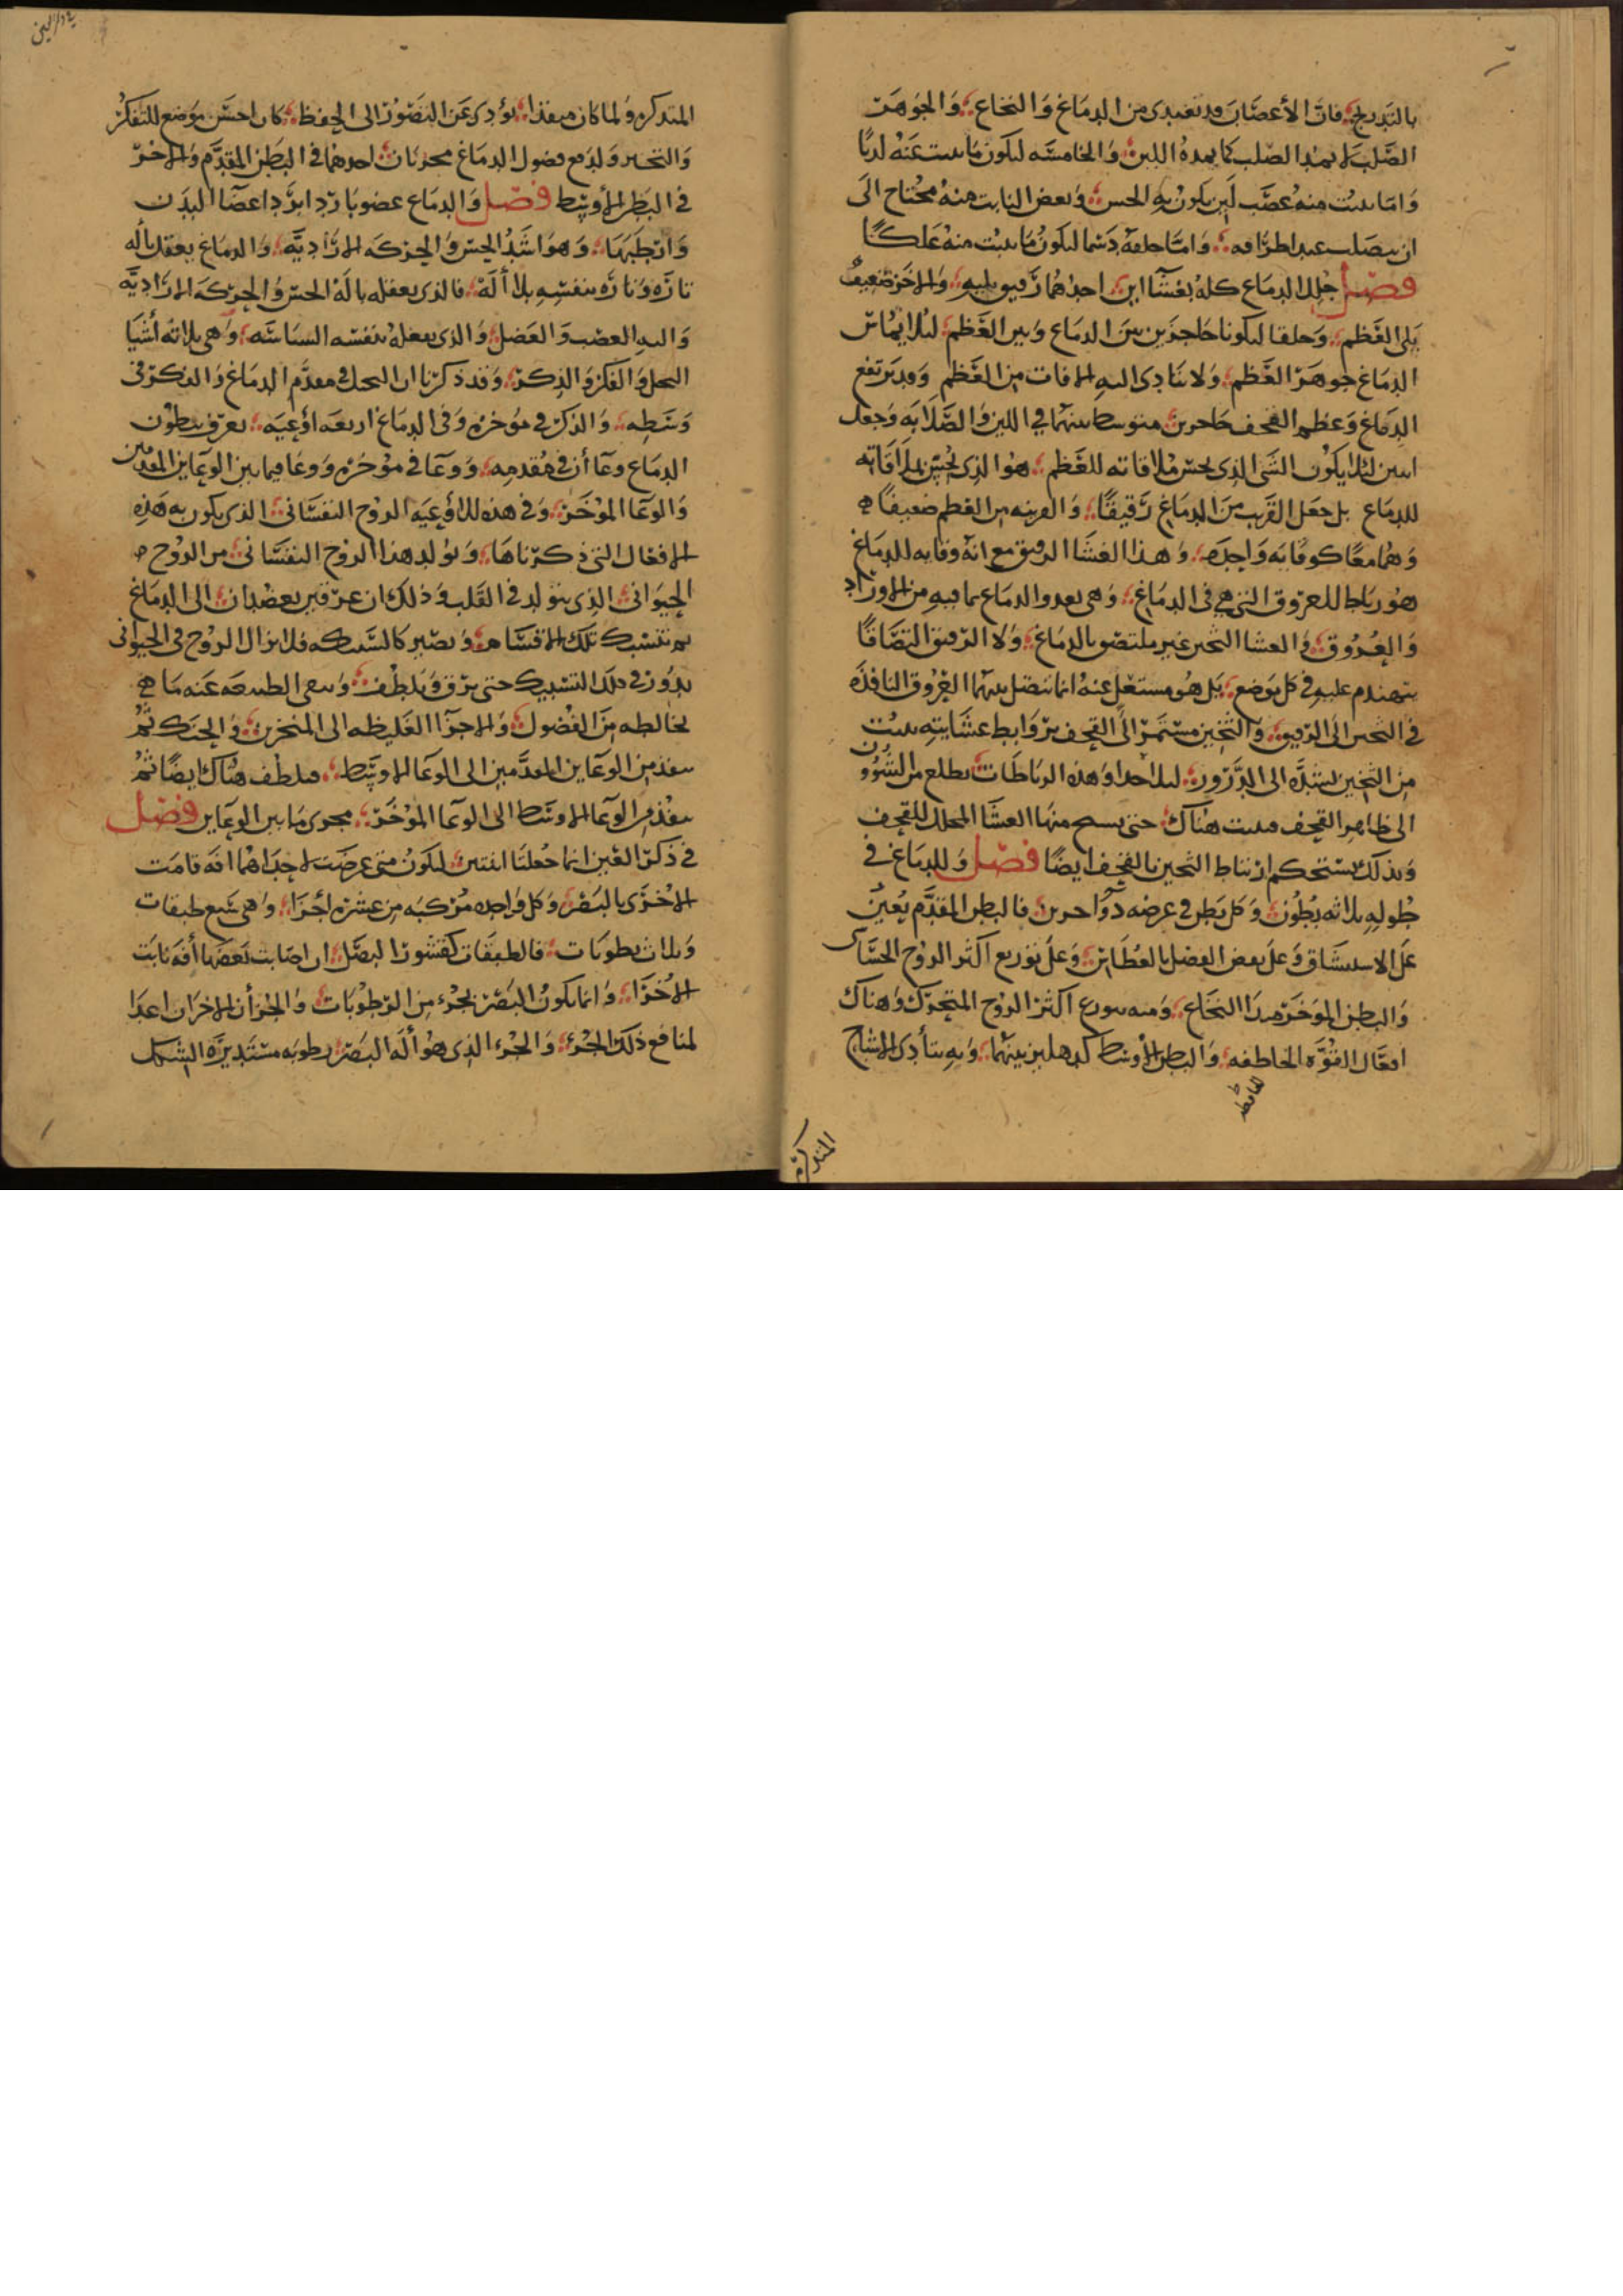 بالتدريج فان الأعصاب قد تغتدى من الدماغ والنخاع والجوهر
الصلب لا يمد الصلب كما يمده اللين والخامسه ليكون ما ينبت عنه لدنا
واما ينبت منه عصب لين يكون به الحس وبعض النابت منه محتاج الى
ان يتصلب عند اطرافه واما خلقه دسما ليكون ما ينبت منه علكا
فصل جلل الدماغ كله بغشااين احدهما رقيق يليه والاخر صفيق
يلى العظم وخلقا ليكونا حاجزين بين الدماغ وبين العظم لئلا يماس
الدماغ جوهر العظم ولا يتادى اليه الافات من العظم وقد يرتفع
الدماغ وعظم القحف حاجزين متوسط بينهما في اللين والصلابه وجعل
اثنين لئلا يكون الشى الذى يحسن ملاقاته للعظم هو الذى يحسن ملاقاته
للدماغ بل جعل القريب من الدماغ رقيقا والقريبه من العظم صفيقا
وهما معا كوقايه واحده وهذا الغشا الرقيق مع انه وقايه للدماغ
هو رباط للعروق التى هي فى الدماغ وهى تغدو الدماغ بما فيه من الاوراد
والعروق والغشا الثخين غير ملتصق بالدماغ ولا الرقيق التصاقا
يتهندم عليه في كل موضع بل هو مستقل عنه انما يتصل بينهما العروق النافذه
في الثخين الى الرقيق والثخين مستمر الى القحف بروابط غشايته ينبت
من الثخين يشده الى الدروز لئلا وهذه الرباطات تطلع من الشؤون
الى ظاهر القحف فينبت هناك حتى ينتسج منها الغشا المجلل للقحف
وبذلك يستحكم ارتباط الثخين بالقحف ايضا فصل وللدماغ في
طوله ثلاثه بطون وكل بطن في عرضه ذو احرين فالبطن المقدم يعين
على الاستنشاق وعلى نفض الفضل بالعطاس وعلى توزيع اكثر الروح الحساس
والبطن الموخر مبدا النخاع ومنه يتوزع اكثر الروح المتحرك وهناك
افعال القوه الحافظه والبطن الأوسط كدهليز بينهما وبه يتأدى الاشباح
المتذكره
المتذكره ولما كان منفذا يؤدى عن التصور الى الحفظ كان احسن موضع للتفكر
والتخيل ولدفع فضول الدماغ مجريان احدهما في البطن المقدم والاخر
في البطن الأوسط فصل والدماغ عضو بارد ابرد اعضا البدن
وارطبها وهو اشد الحس والحركه الاراديه والدماغ يفعل بأله
تاره وتاره بنفسه بلا ألة فالذى يفعله بالة الحس والحركه الاراديه
واليه العصب والعضل والذى يفعله بنفسه السياسه وهى ثلاثه أشيا
التخيل والفكر والذكر وقد ذكرنا ان التخيل في مقدم الدماغ والفكر فى
وسطه والذكر في موخره وفى الدماغ اربعه اوعيه يعرف ببطون
الدماغ وعاأن في مقدمه ووعا في موخره ووعا فيما بين الوعاين المقدمين
والوعا الموخر وفى هذه للاوعيه الروح النفسانى الذى يكون به هذه
الافعال التى ذكرناها وتولد هذا الروح النفسانى من الروح
الحيوانى الذى يتولد في القلب وذلك ان عرقين يصعدان الى الدماغ
ثم تتشبك تلك الاقسام وتصير كالشبكه فلا يزال الروح في الحيوانى
يدور في ذلك التشبيك حتى يرق ويلطف وينقى الطبيعه عنه ما
يخالطه من الفضول والاجزاا الغليظه الى المنخرين والحنك ثم
ينفذ من الوعاين المقدمين الى الوعا الاوسط فيلطف هناك ايضا ثم
ينفذ من الوعا الاوسط الى الوعا الموخر مجرى ما بين الوعاين فصل
في ذكر العين انما جعلتا اثنتين ليكون متى عرضت لاحداهما افه قامت
الاخرى بالبصر وكل واحده مركبه من عشره أجزا وهى سبع طبقات
وثلاث رطوبات فالطبقات كقشور البصل ان اصابت بعضها أفه نابت
الأخرا وانما يكون البصر بجزء من الرطوبات والجزأن الاخران اعدا
لمنافع ذلك الجزء والجزء الذى هو أله البصر رطوبه مستديره الشكل